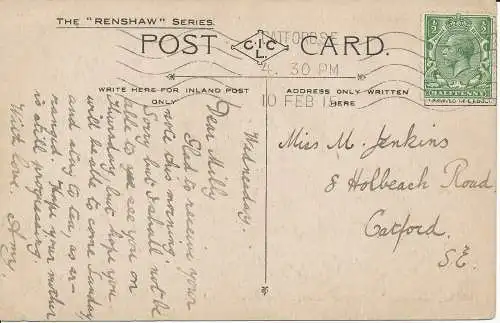 THE "RENSHAW" SERIES.
POST CARD.
C.I.C
L.
CATFORD.S.E
4. 30 PM
10 FEB 15
HALFPENNY
WRITE HERE FOR INLAND POST
ONLY
ADDRESS ONLY WRITTEN
HERE
Wednesday.
Dear Milly
Glad to receive your
note this morning
Sorry but I shall not be
able to see you on
Thursday, but hope you
will be able to come Sunday
and stay to tea, as ar-
ranged. Hope your mother
is still progressing.
With love. Amy.
Miss M. Jenkins
8 Holbeach Road
Catford.
S.E.